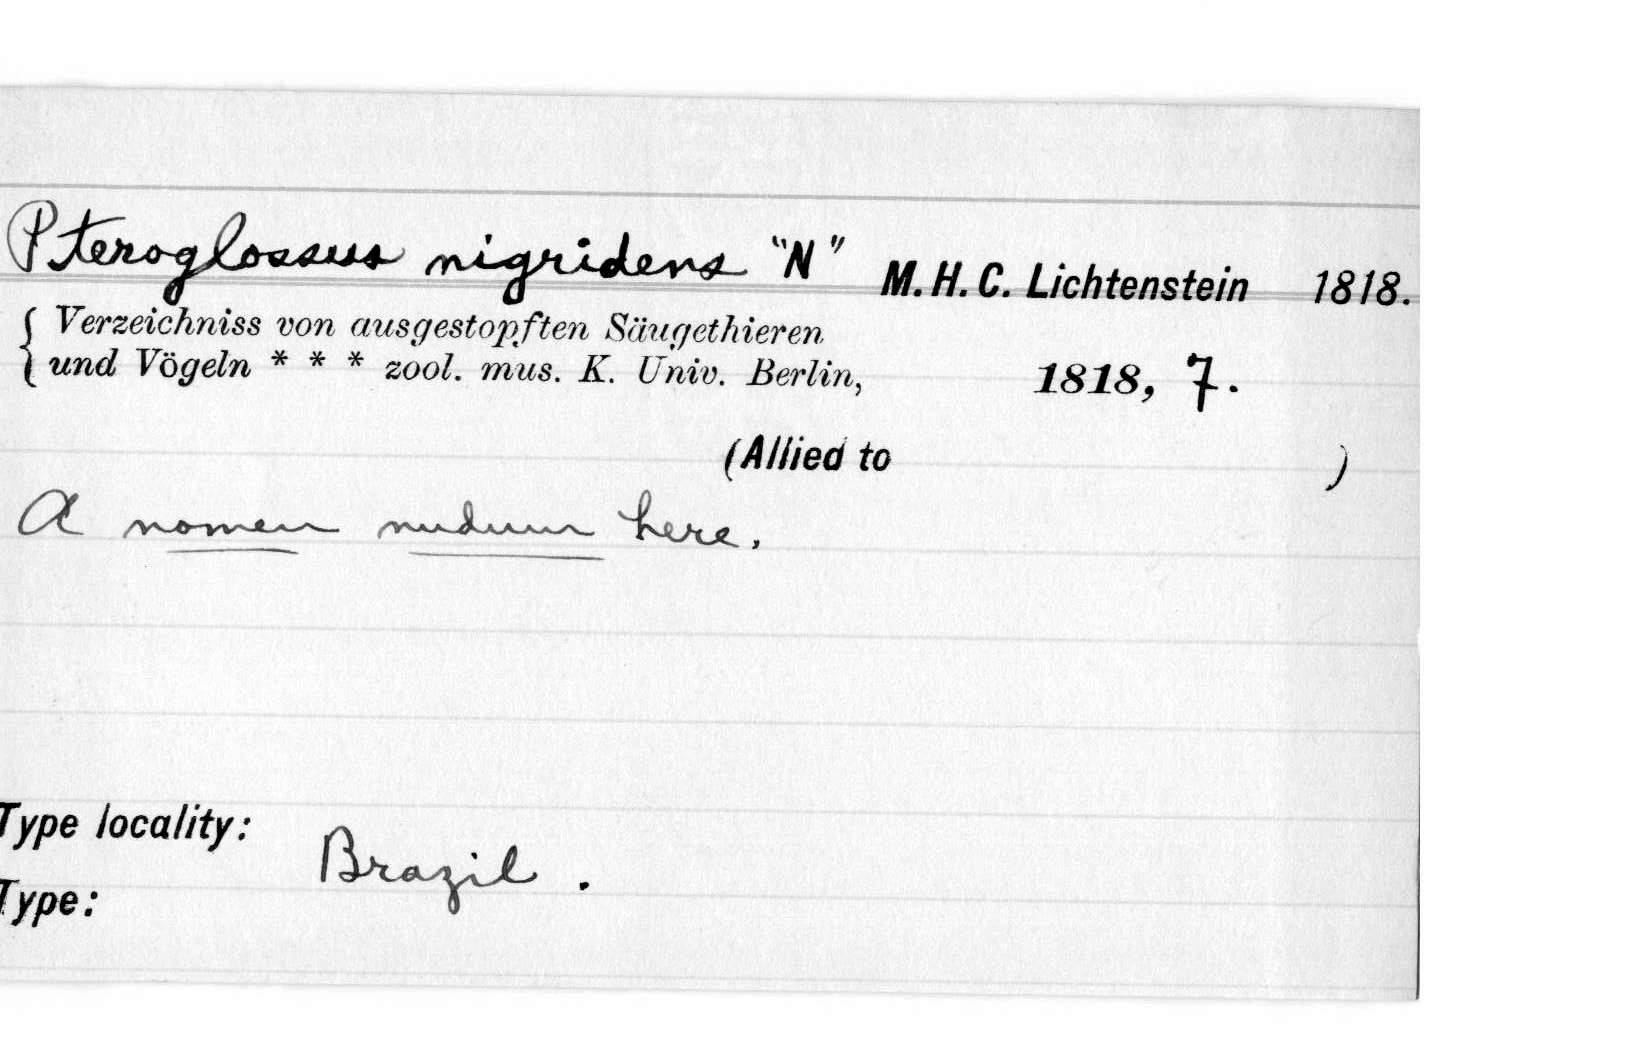 Pteroglossus nigridens "N" M. H. C. Lichtenstein 1818.
{ Verzeichniss von ausgestopften Säugethieren
und Vögeln * * * zool. mus. K. Univ. Berlin, 1818, 7.
(Allied to )
A nomen nudum here.
Type locality: Brazil.
Type: